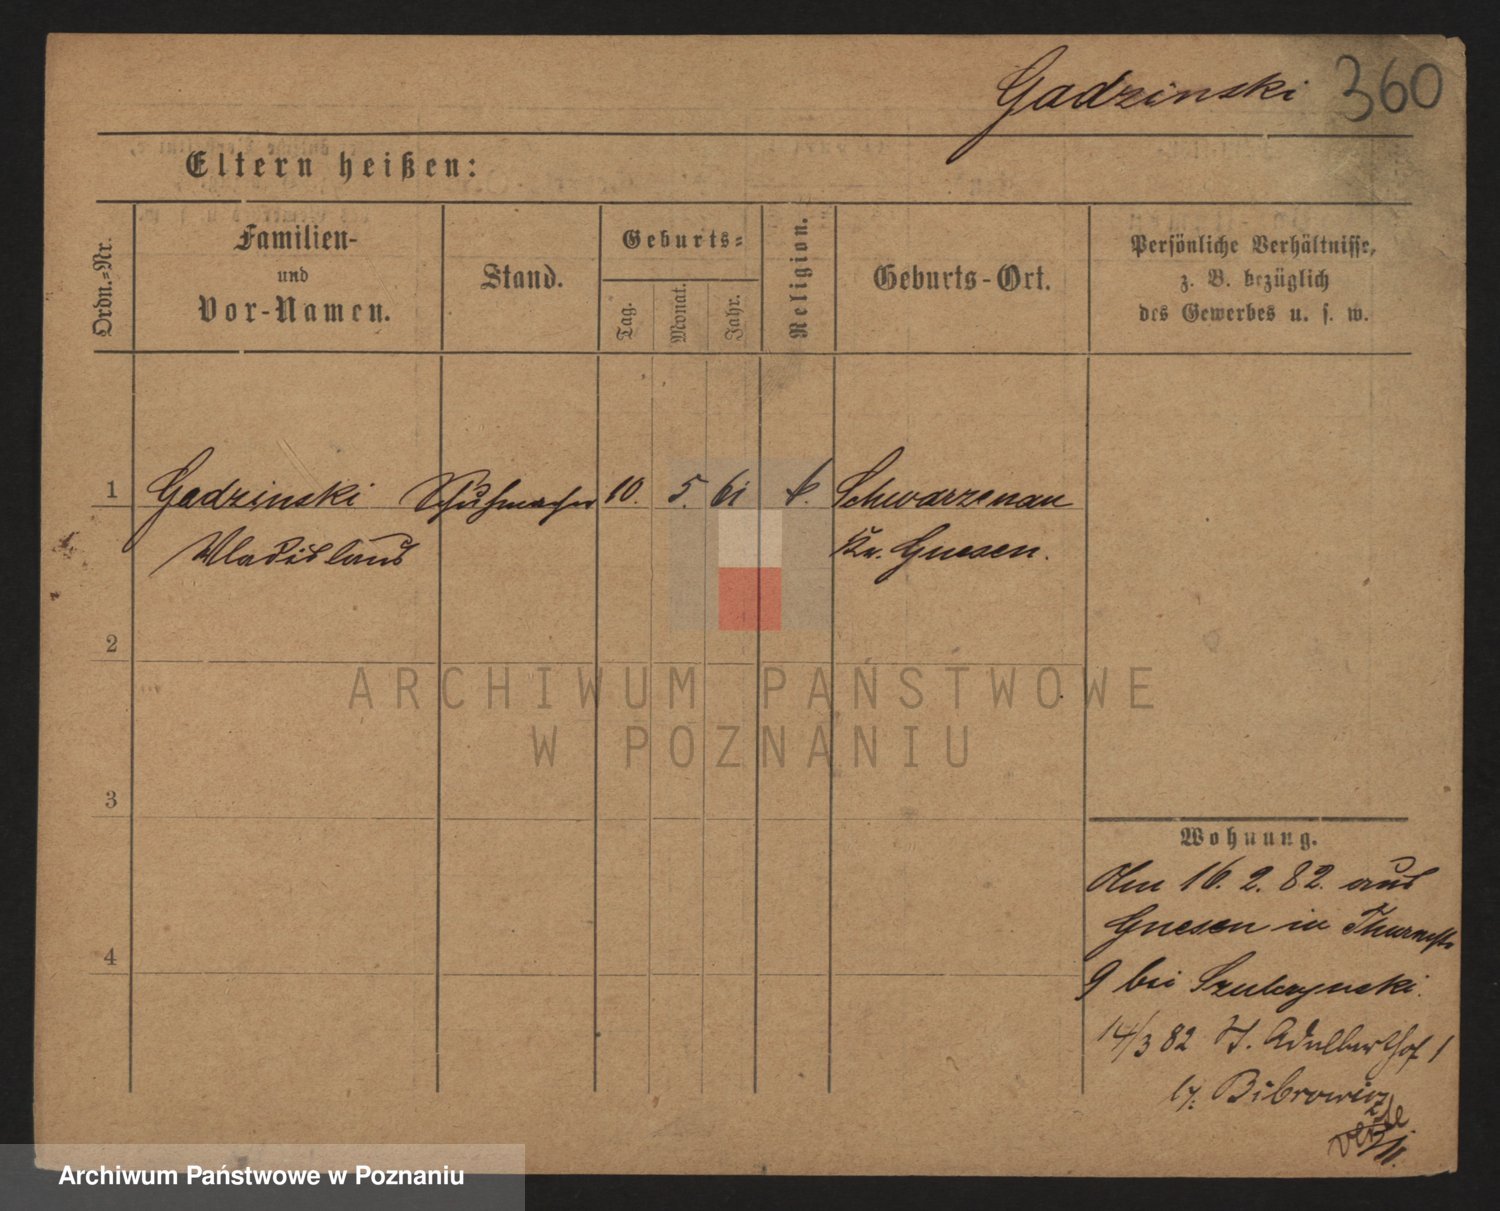 Gadzinski 360
Eltern heißen:
Ordn.-Nr.
Familien-
und
Vor-Namen.
Stand.
Geburts-
Tag.
Monat.
Jahr.
Religion.
Geburts-Ort.
Persönliche Verhältnisse,
z. B. bezüglich
des Gewerbes u. s. w.
1 Gadzinski Schuhmacher 10. 5. 61 k. Schwarzenau
Wladislaus Kr. Gnesen.
2
3
4
Wohnung.
Am 16. 2. 82. aus
Gnesen in Thurmstr
9 bei Szulczynski.
14/3 82 St. Adalberthof 1
b. Bibrowicz
ARCHIWUM PAŃSTWOWE
W POZNANIU
Archiwum Państwowe w Poznaniu